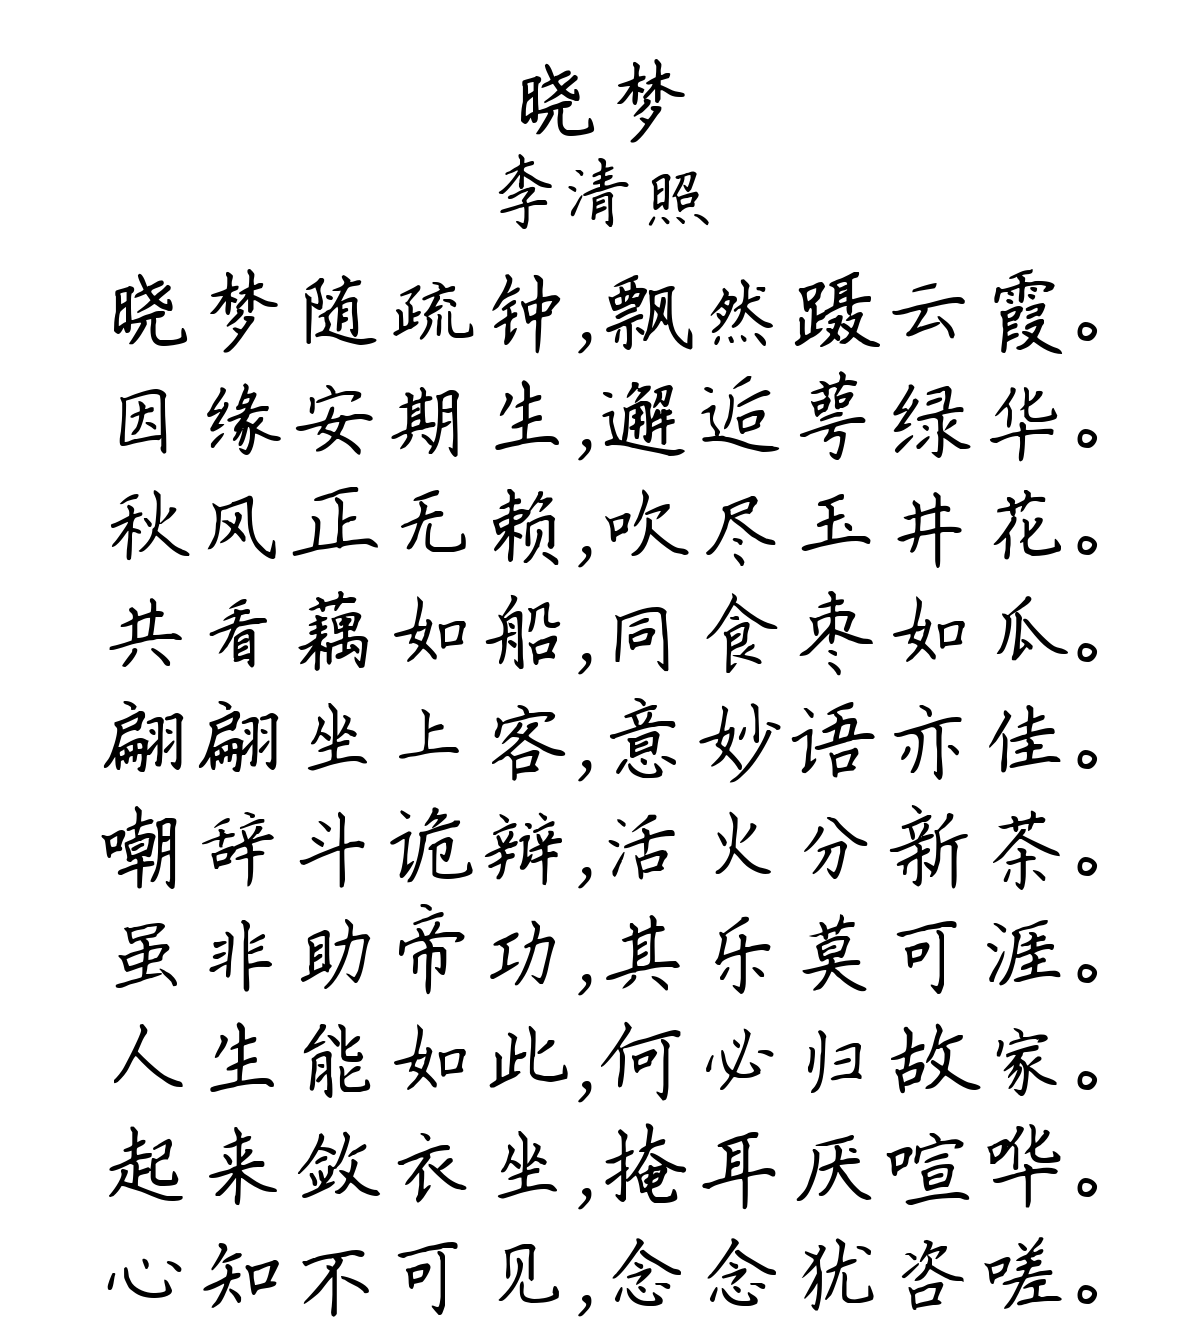 晓梦
李清照
晓梦随疏钟,飘然蹑云霞。
因缘安期生,邂逅萼绿华。
秋风正无赖,吹尽玉井花。
共看藕如船,同食枣如瓜。
翩翩坐上客,意妙语亦佳。
嘲辞斗诡辩,活火分新茶。
虽非助帝功,其乐莫可涯。
人生能如此,何必归故家。
起来敛衣坐,掩耳厌喧哗。
心知不可见,念念犹咨嗟。